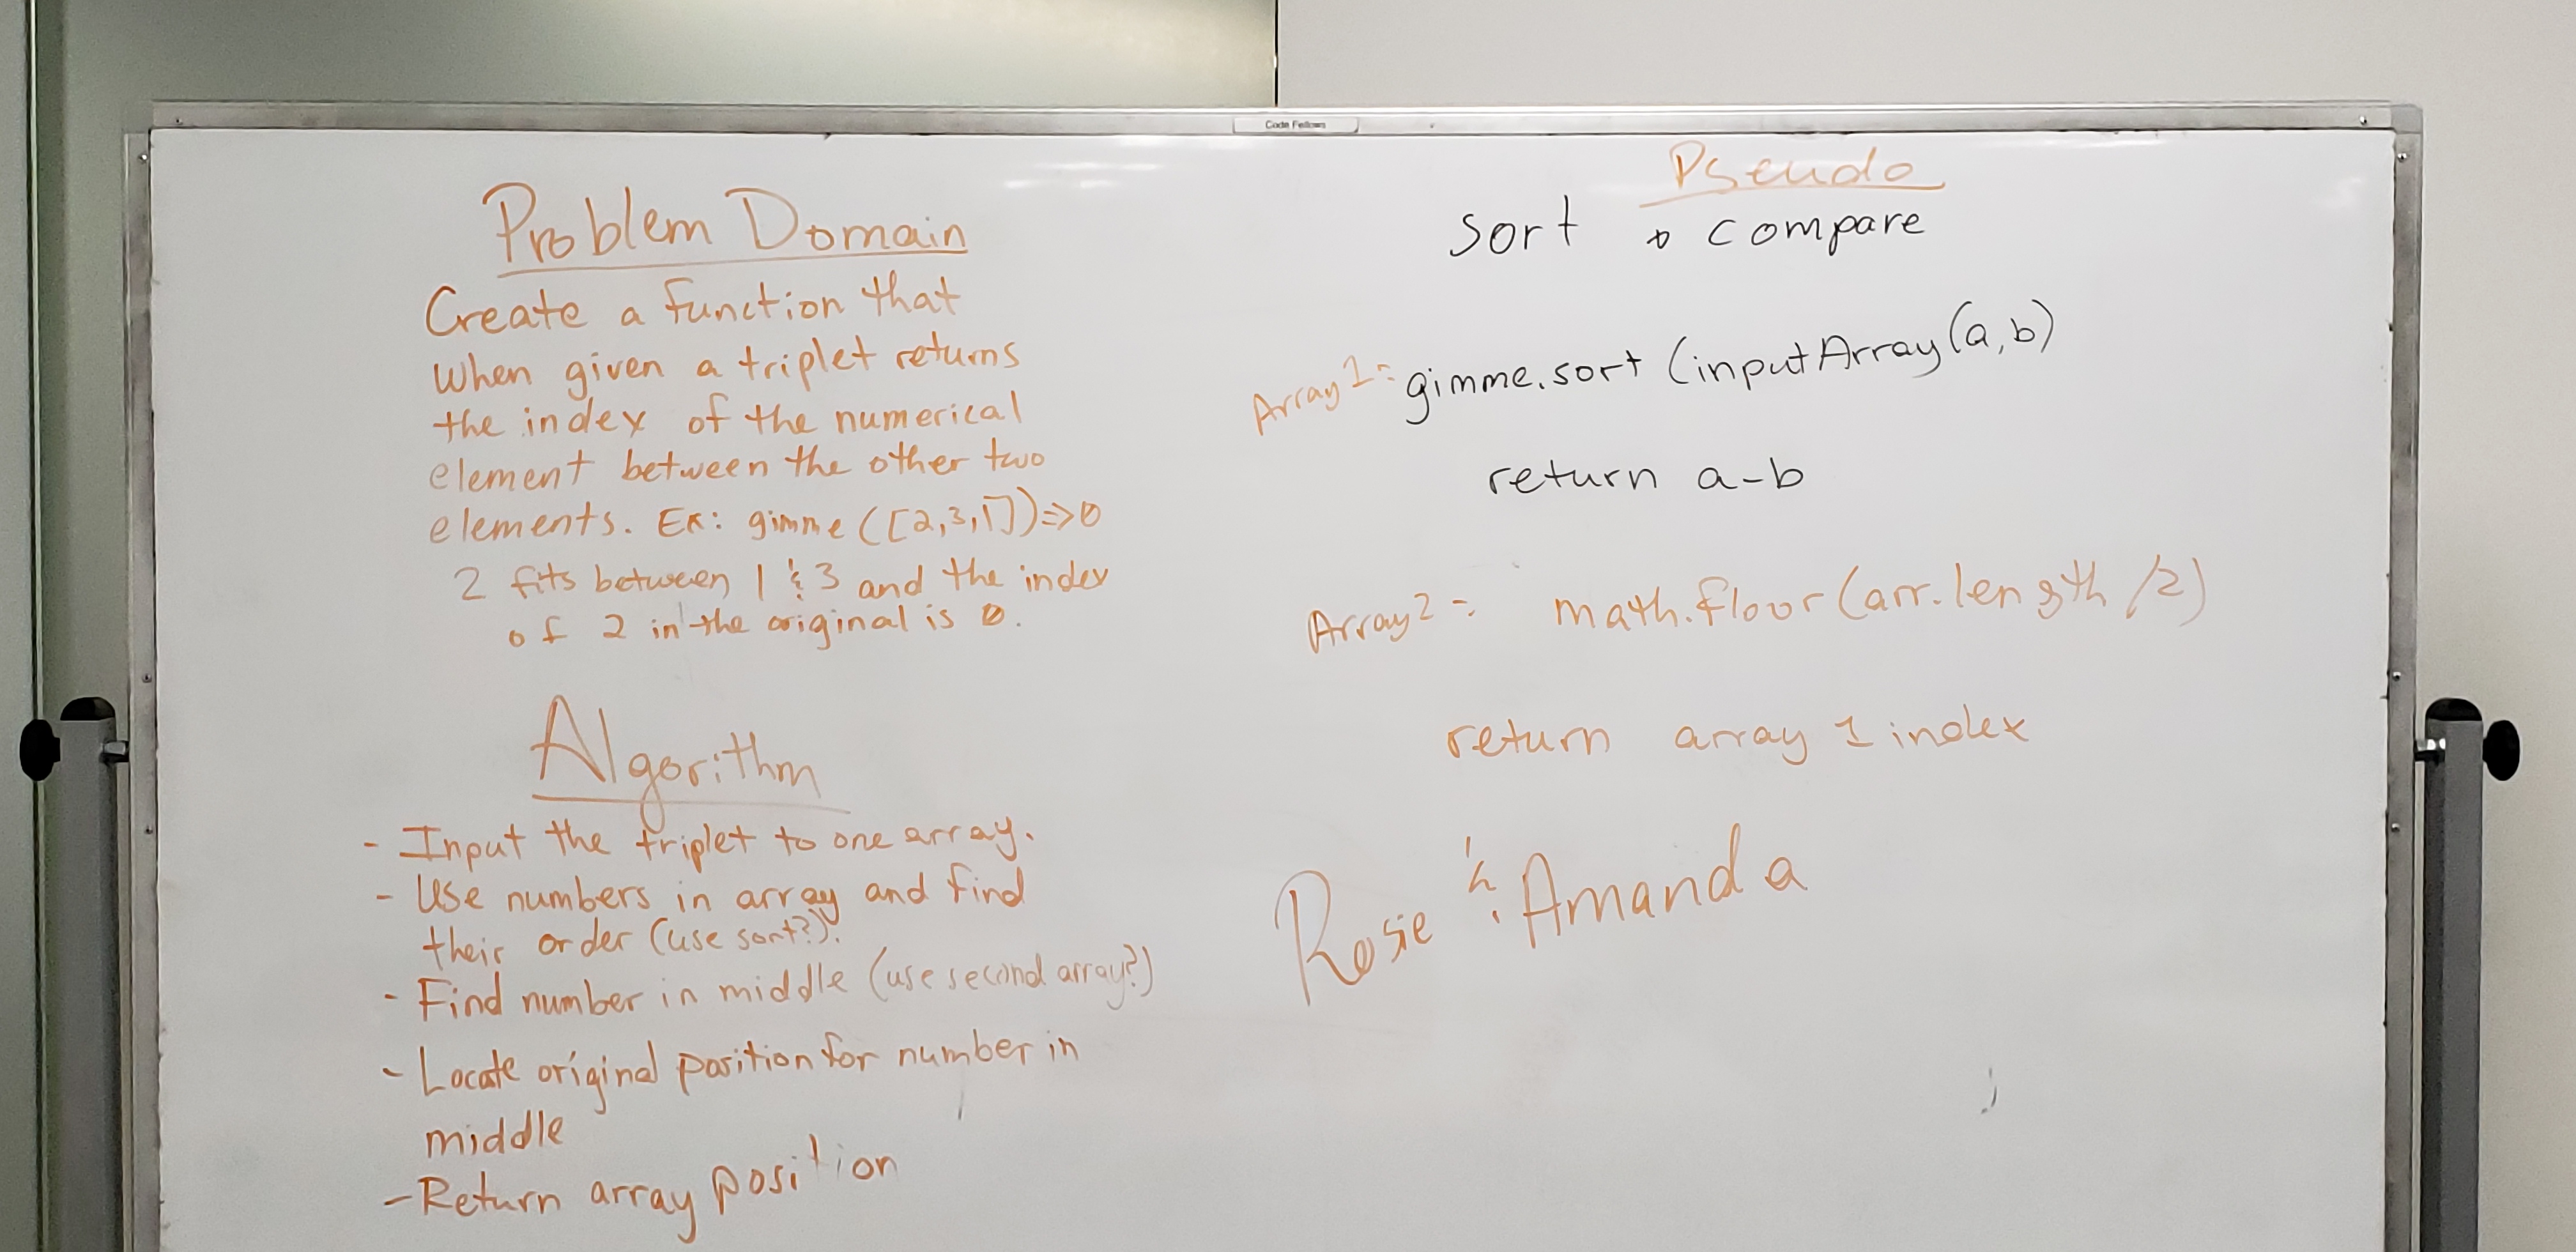 Code Fellows
Problem Domain
Create a function that
when given a triplet returns
the index of the numerical
element between the other two
elements. Ex: gimme ([2,3,1])=>0
2 fits between 1 & 3 and the index
of 2 in the original is 0.
Algorithm
- Input the triplet to one array.
- Use numbers in array and find
their order (use sort?).
- Find number in middle (use second array?)
- Locate original position for number in
middle
- Return array position
Pseudo
sort & compare
Array1= gimme.sort (inputArray(a,b)
return a-b
Array2 = math.floor(arr.length /2)
return array 1 index
Rosie & Amanda